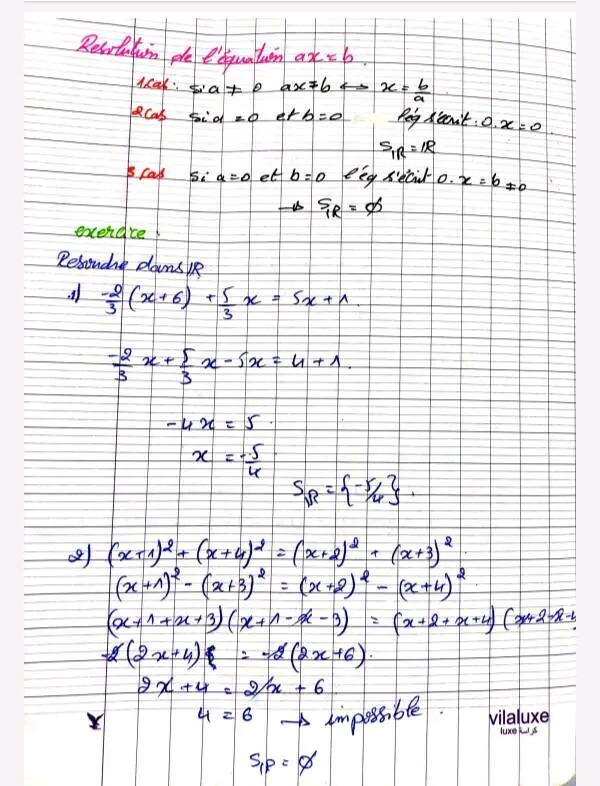 Resolution de l'équation ax=b.
1Cas: si a ≠ 0 ax=b ↔ x = b/a
2Cas si a=0 et b=0 l'éq s'écrit: 0.x=0
S_IR = IR
3.Cas si a=0 et b=0 l'éq s'écrit 0.x=b≠0
→ S_IR = ∅
exercice:
Resoudre dans IR
1) -2/3 (x+6) + 5/3 x = 5x+1
-2/3 x + 5/3 x - 5x = 4+1.
-4x = 5
x = -5/4
S_IR = {-5/4}.
2) (x+1)² + (x+4)² = (x+2)² + (x+3)²
(x+1)² - (x+3)² = (x+2)² - (x+4)²
(x+1+x+3)(x+1-x-3) = (x+2+x+4)(x+2-x-4
-2(2x+4) = -2(2x+6).
2x+4 = 2x+6
4 = 6 → impossible.
vilaluxe
luxe كراسة
S_IR = ∅